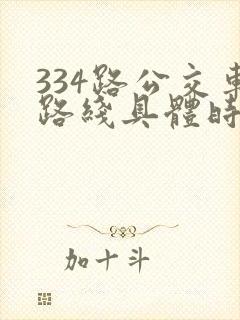 334路公交車
路綫具體時
加十斗